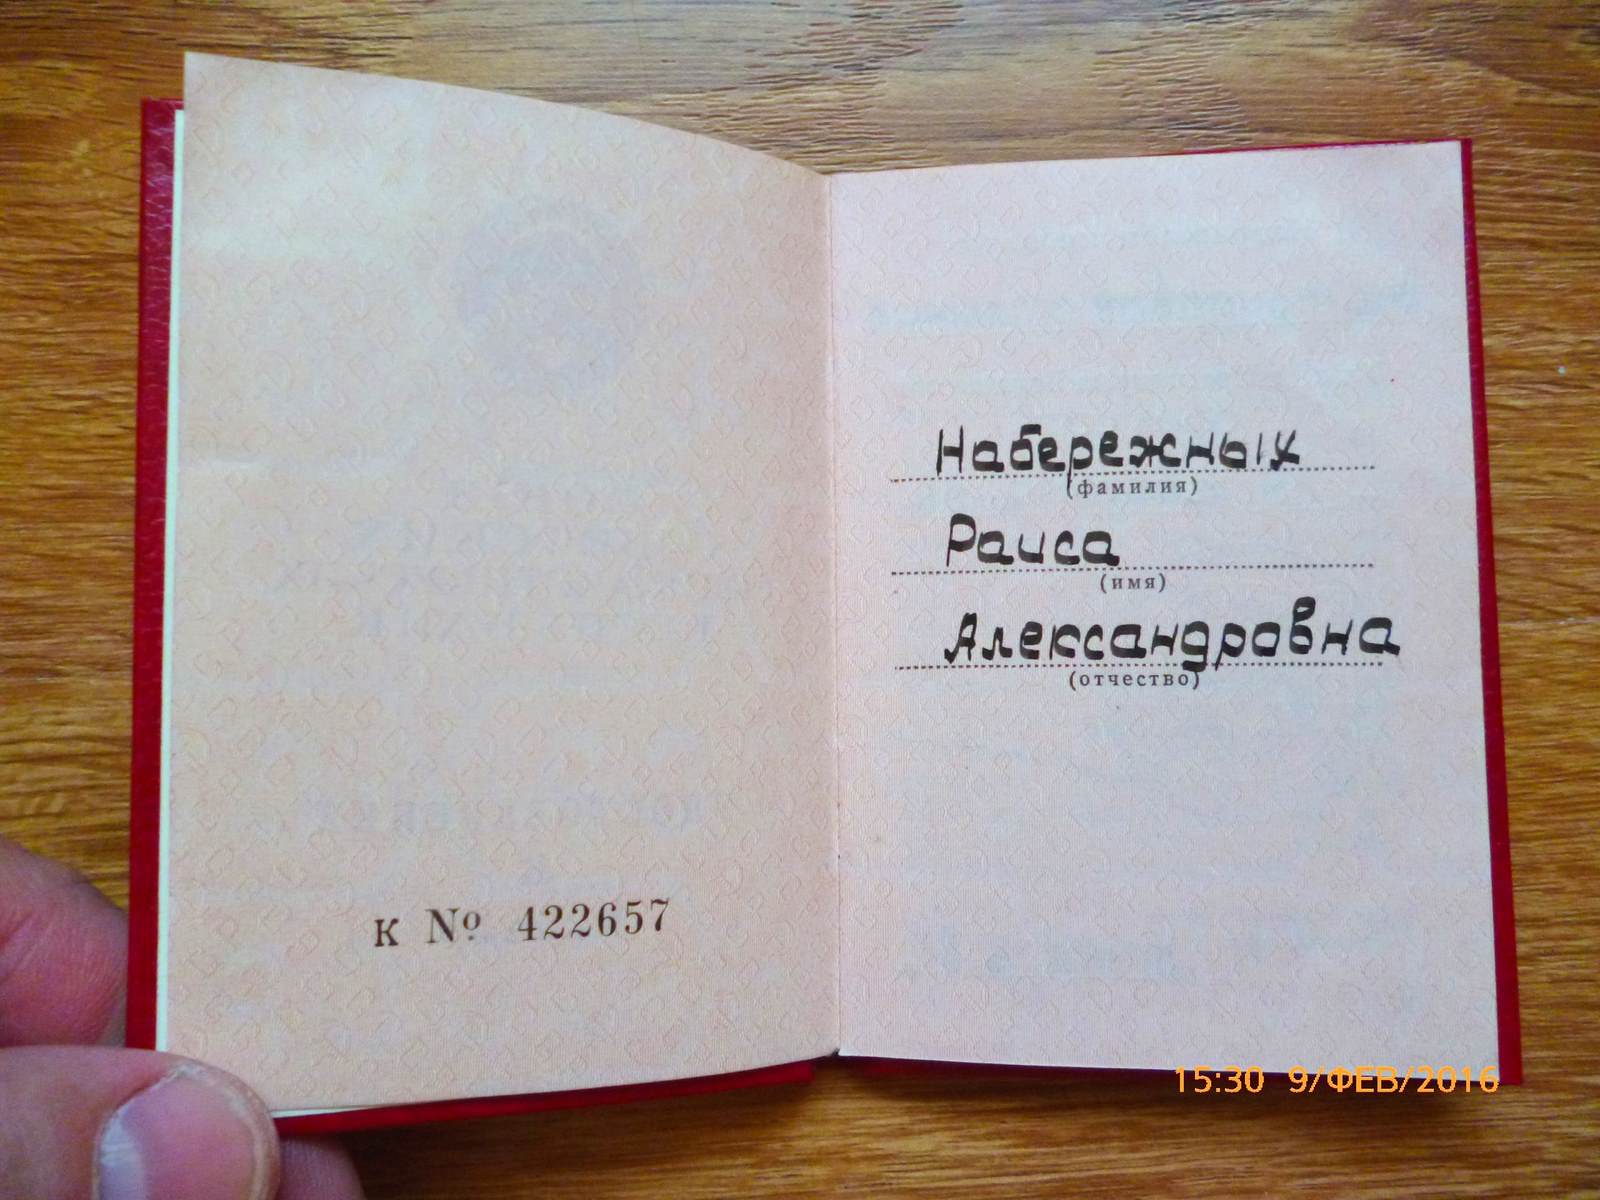 К № 422657
Набережных
(фамилия)
Раиса
(имя)
Александровна
(отчество)
15:30 9/ФЕВ/2016